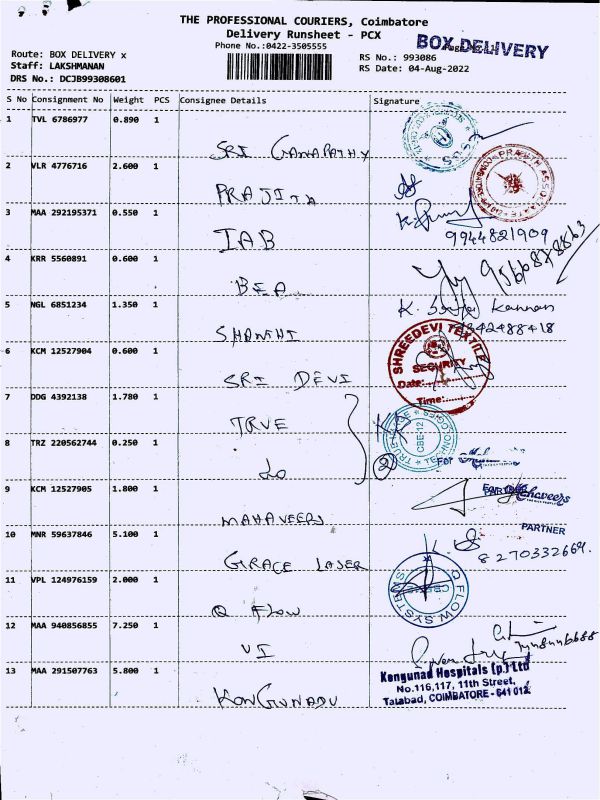 THE PROFESSIONAL COURIERS, Coimbatore
Delivery Runsheet - PCX
Phone No.:0422-3505555
BOX DELIVERY
Route: BOX DELIVERY x
Staff: LAKSHMANAN
DRS No.: DCJB99308601
RS No.: 993086
RS Date: 04-Aug-2022
S No Consignment No Weight PCS Consignee Details Signature
1 TVL 6786977 0.890 1
SRI GANAPATHY
2 VLR 4776716 2.600 1
PRAJITA
3 MAA 292195371 0.550 1
IAB
9944821909
4 KRR 5560891 0.600 1
BEA
9566878863
5 NGL 6851234 1.350 1
SHANTHI
Kannan
42488418
6 KCM 12527904 0.600 1
SRI DEVI
SHREEDEVI TEXTILE
SECURITY
Date:
Time:
7 DDG 4392138 1.780 1
TRUE
CBE-12
8 TRZ 220562744 0.250 1
2
For
9 KCM 12527905 1.800 1
MAHAVEERS
Mahaveers
PARTNER
10 MNR 59637846 5.100 1
GRACE LASER
8270332669.
11 VPL 124976159 2.000 1
Q FLOW
Q FLOW SYSTEMS
12 MAA 940856855 7.250 1
VI
13 MAA 291507763 5.800 1
KONGUNADU
Kongunad Hospitals (p.) Ltd
No.116,117, 11th Street,
Tatabad, COIMBATORE - 641 012.